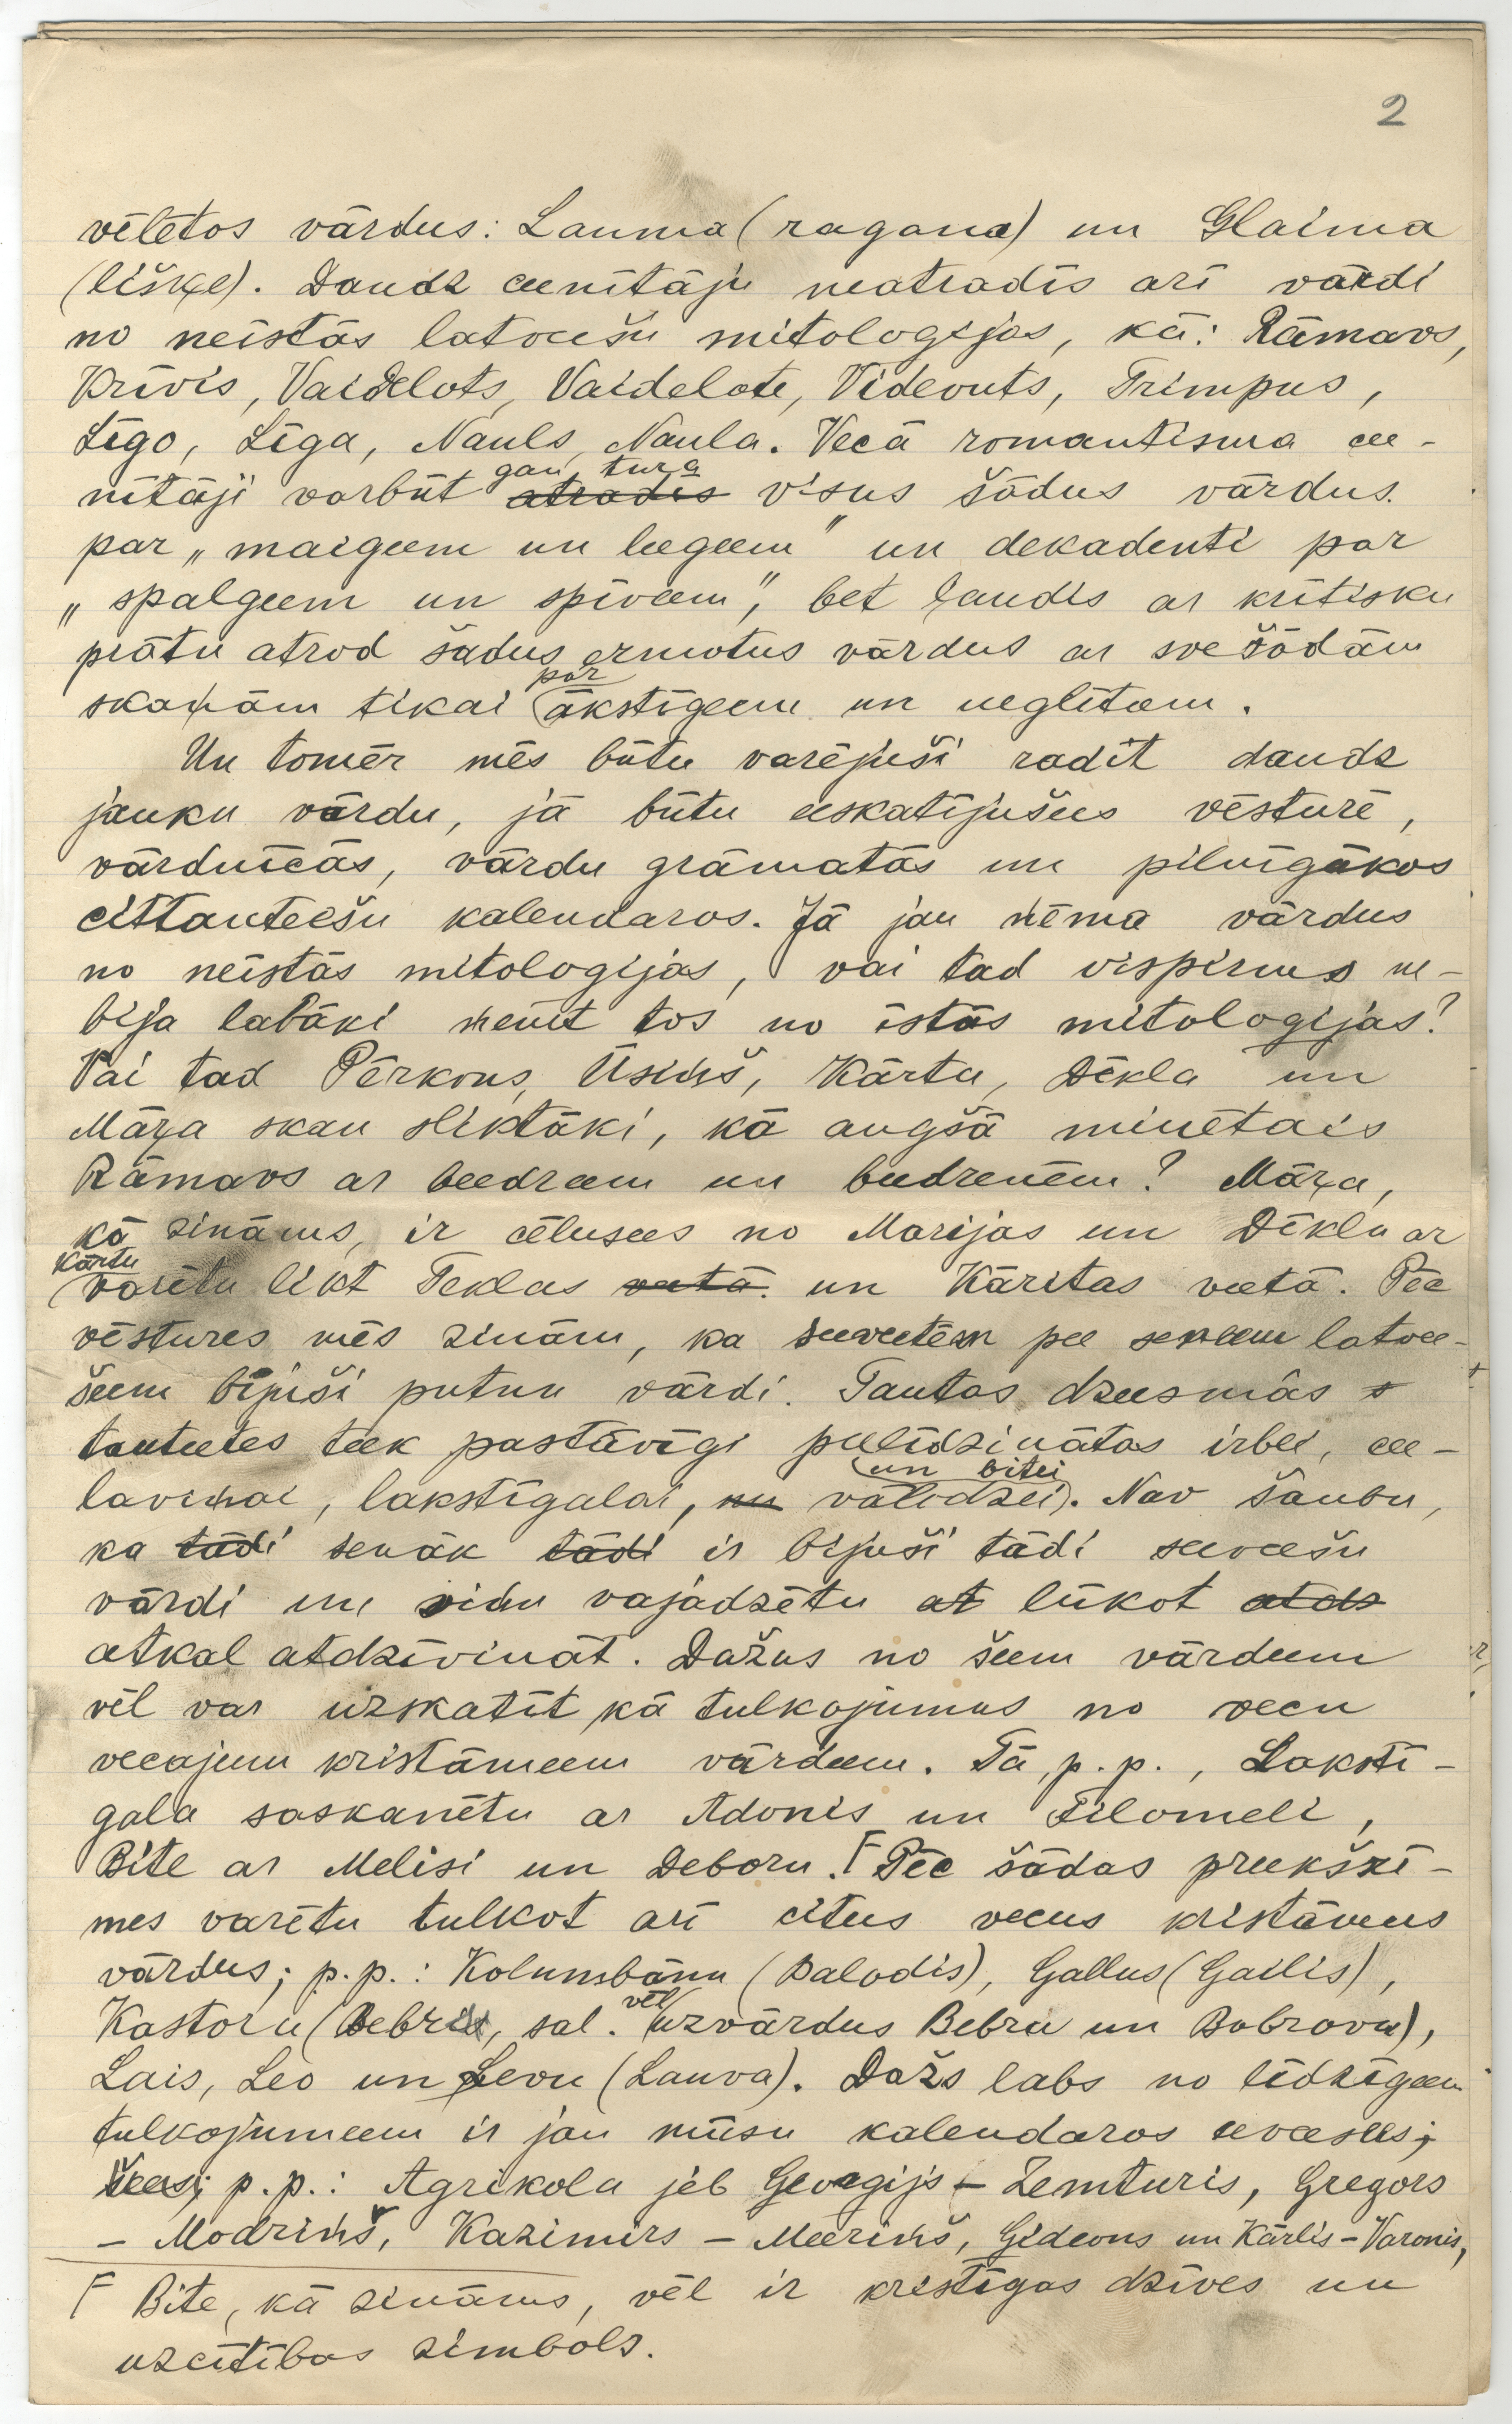 2
vēlētos vārdus: Lauma (ragana) un Glaima
(lišķe). Daudz ceenītāju neatradīs arī vārdi
no neīstās latveešu mitologijas, kā: Rāmavs,
Krīvis, Vaidelots, Vaidelote, Videvuts, Trimpus,
Līgo, Līga, Nauls, Naula. Vecā romantisma cee-
gan tura
nītāji varbūt atradīs visus šādus vārdus
par „maigeem un leegeem" un dekadenti par
„spalgeem un spīveem", bet ļaudis ar kritisku
prātu atrod šādus ermotus vārdus ar svešādām
par
skaņām tikai ākstīgeem un neglīteem.
Un tomēr mēs būtu varējuši radīt daudz
jauku vārdu, ja būtu eeskatījušees vēsturē,
vārdnīcās, vārdu grāmatās un pilnīgākos
cittauteešu kalendaros. Ja jau ņēma vārdus
no neīstās mitologijas, vai tad vispirms ne-
bija labāki ņemt tos no īstās mitologijas?
Vai tad Pērkons, Ūsiņš, Kārta, Dēkla un
Māŗa skan sliktāki, kā augšā minētais
Rāmavs ar beedreem un beedrenēm? Māŗa,
kā zināms, ir cēlusees no Marijas un Dēklu ar
Kārtu
varētu likt Teklas veetā un Kāritas veetā. Pēc
vēstures mēs zinām, ka seeveetēm pee seneem latvee-
šeem bijuši putnu vārdi. Tautas dzeesmās s
tauteetes teek pastāvīgi peelīdzinātas irbei, cee-
un bitei
laviņai, lakstīgalai, un vālodzei. Nav šaubu,
ka tādi senāk tādi ir bijuši tādi seeveešu
vārdi un viņu vajadzētu at lūkot atdz
atkal atdzīvināt. Dažus no šeem vārdeem
vēl var uzskatīt kā tulkojumus no vecu
vecajeem kristāmeem vārdeem. Tā, p. p., Laksti-
gala saskanētu ar Adonis un Filomeli,
Bite ar Melisi un Deboru.Γ Pēc šādas preekšzī-
mes varētu tulkot arī citus vecus kristāmus
vārdus; p. p.: Kolumbānu (Balodis), Gallus (Gailis),
vēl
Kastoru (Bebris, sal. uzvārdus Bebru un Bobrovu),
Lais, Leo un Levu (Lauva). Dažs labs no līdzīgeem
tulkojumeem ir jau mūsu kalendaros eeveesees;
šees; p. p.: Agrikola jeb Georgijs – Zemturis, Gregors
– Modriņš, Kazimirs – Meeriņš, Gideons un Kārlis – Varonis,
Γ Bite, kā zināms, vēl ir kristīgas dzīves un
uzcītības simbols.